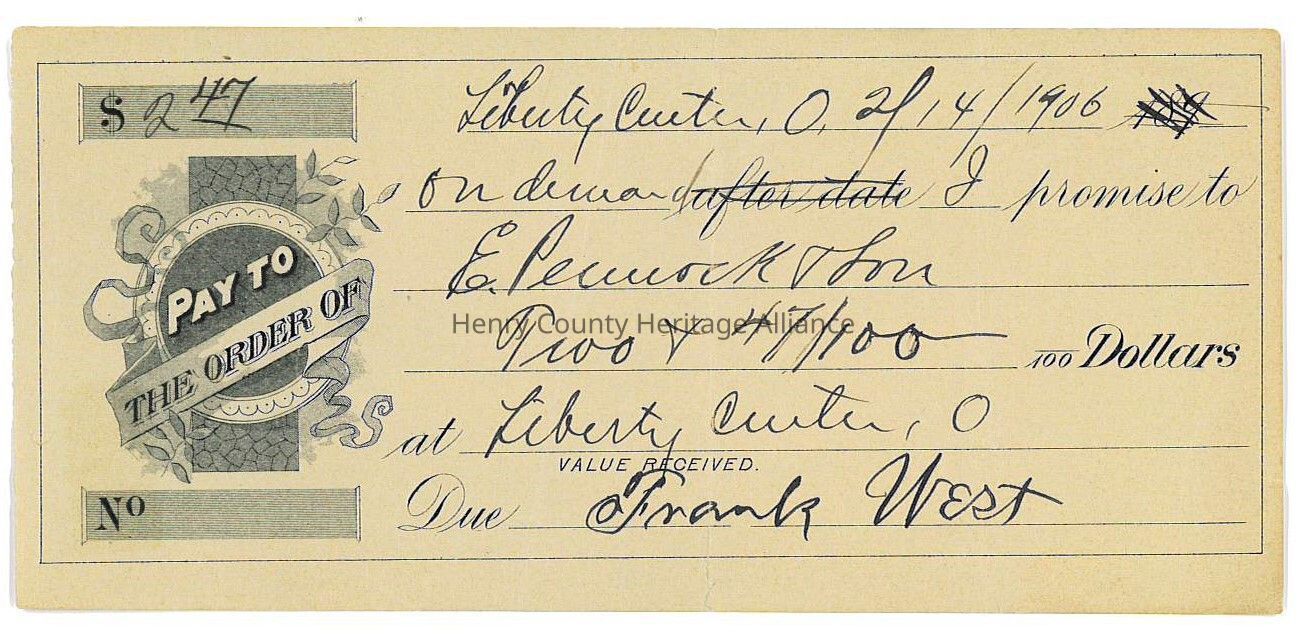 $ 2 47
Liberty Center, O, 2/14/1906
on demand after date I promise to
PAY TO
THE ORDER OF
E. Pennock & Son
Henry County Heritage Alliance
Two & 47/100 /100 Dollars
at Liberty Center, O
VALUE RECEIVED.
No
Due Frank West